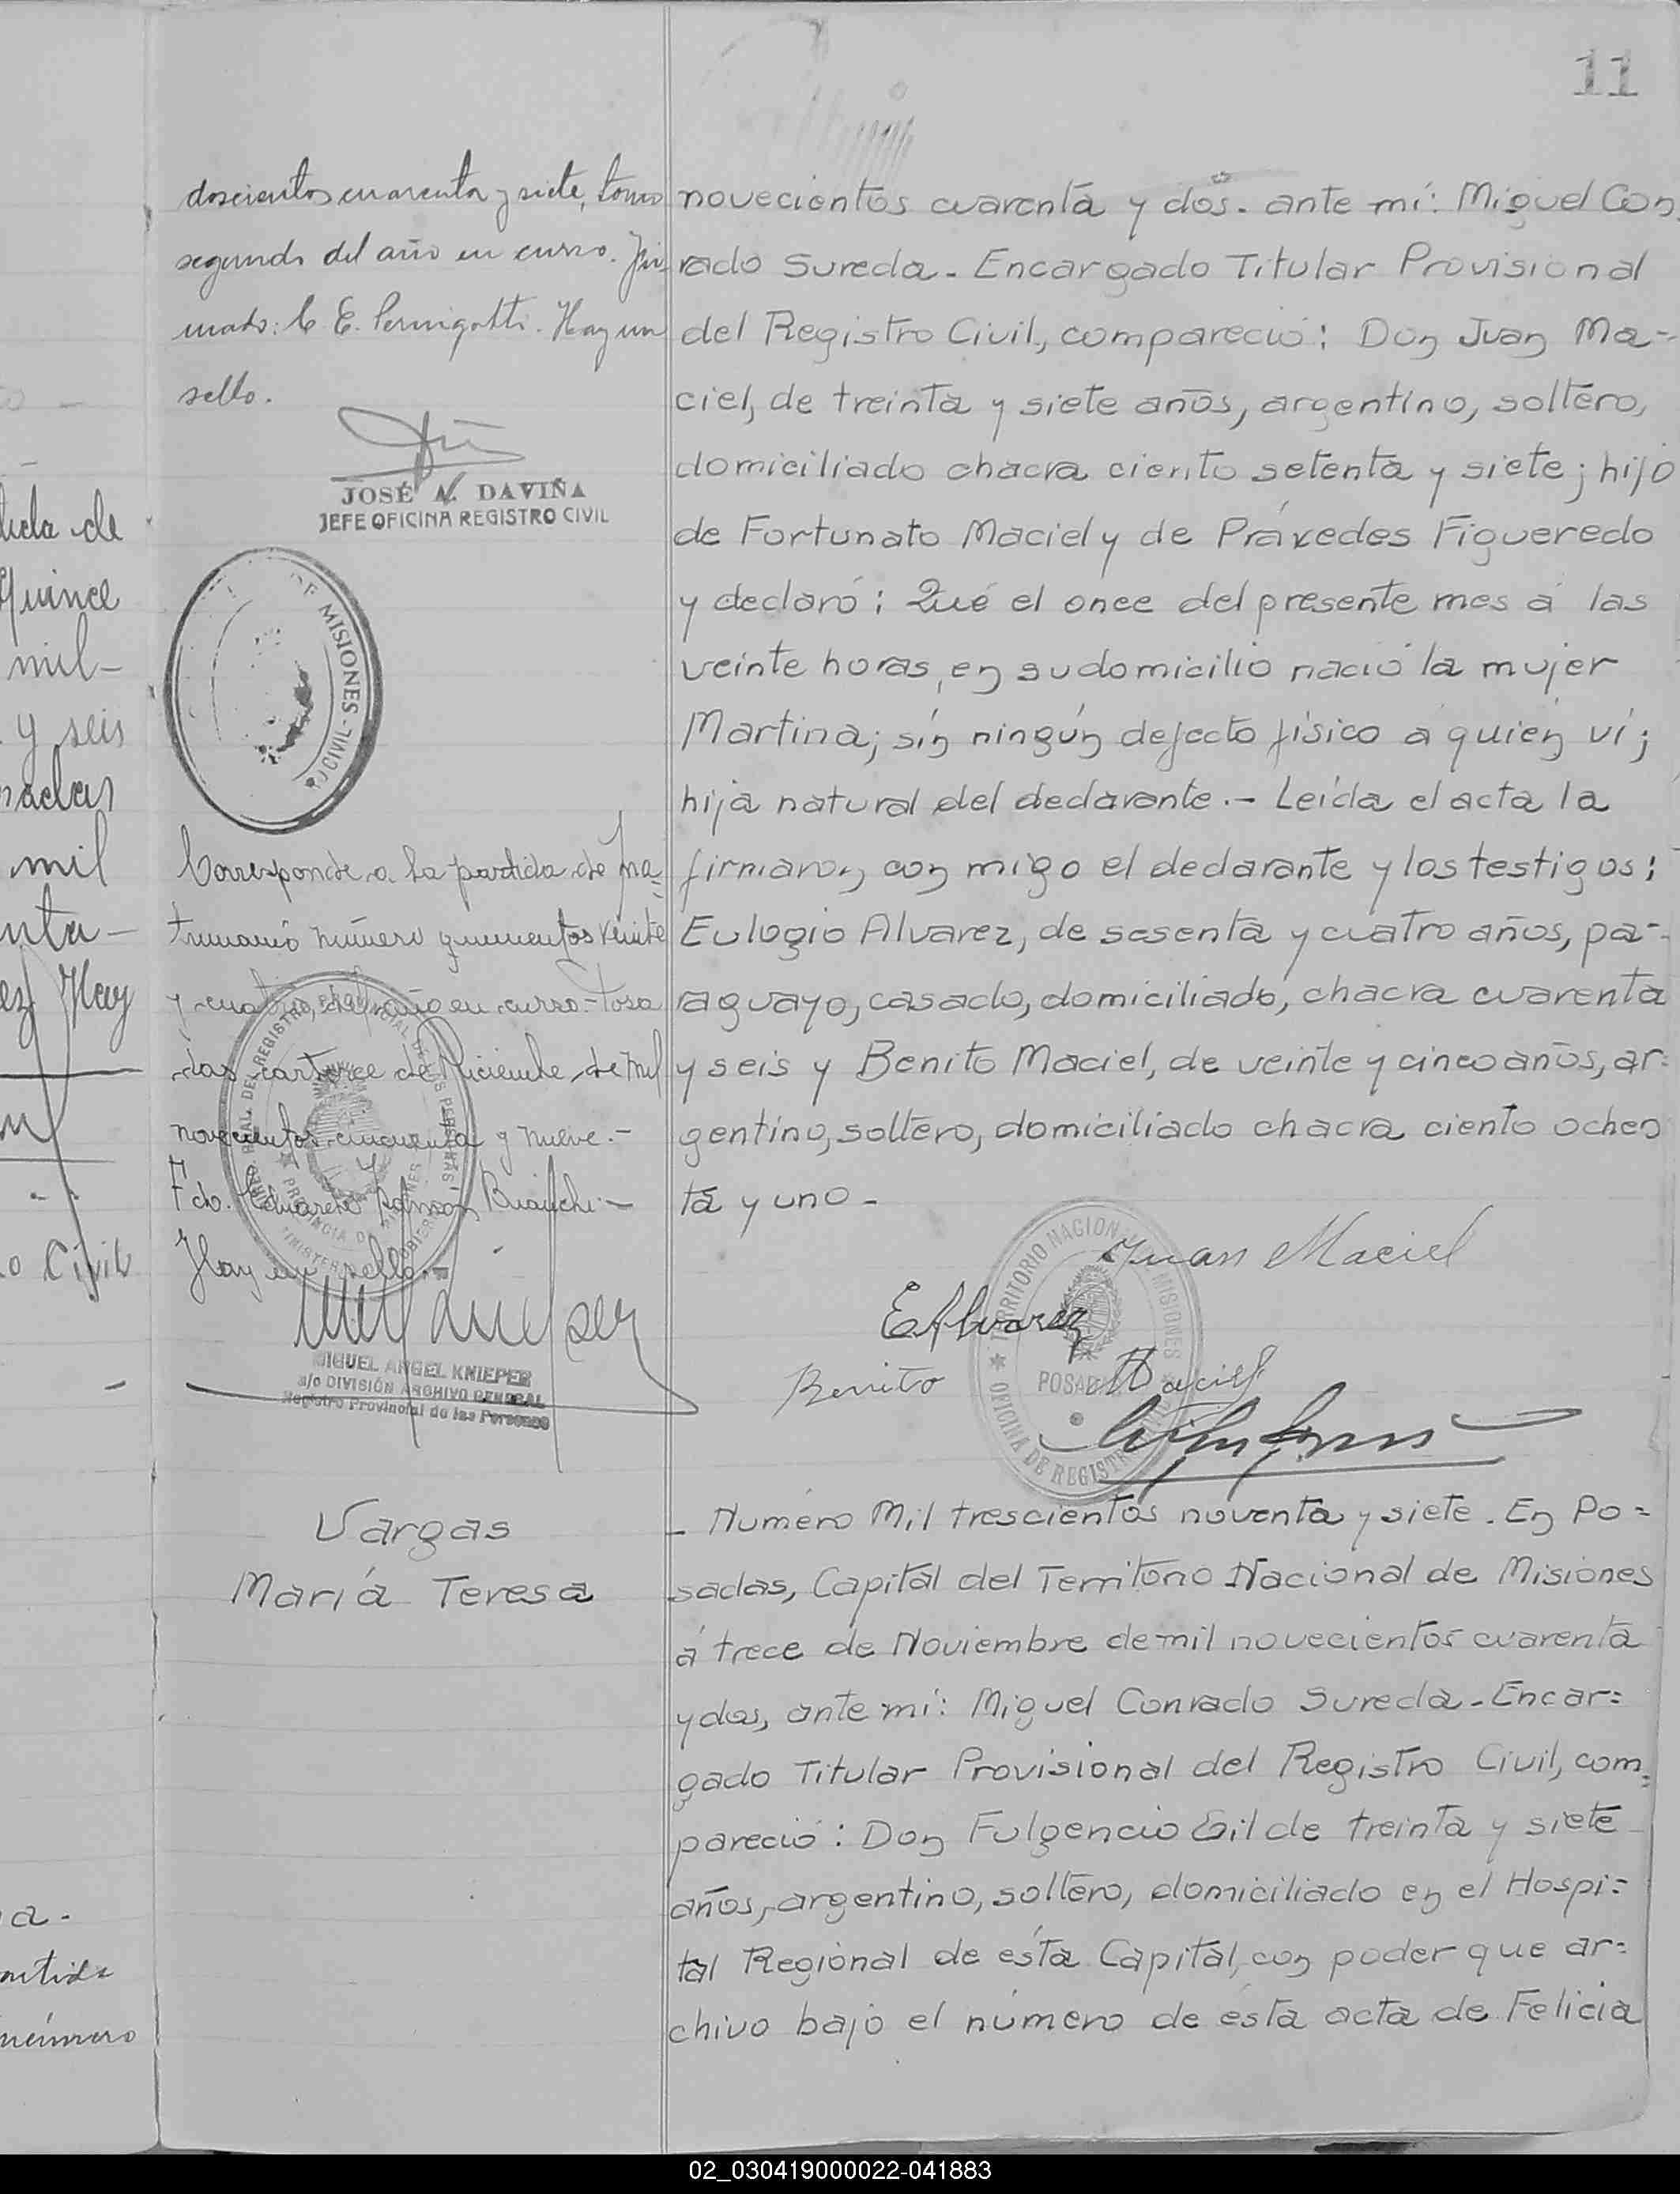 11
doscientos cuarenta y siete, tomo
segundo del año en curso. Fir-
mado: C. E. Pernigotti. Hay un
sello.
JOSÉ A. DAVIÑA
JEFE OFICINA REGISTRO CIVIL
DE MISIONES - CIVIL
Corresponde a la partida de ma=
trimonio número quinientos veinte
y cuatro, del año en curso.- Posa
das catorce de Diciembre de mil
novecientos cincuenta y nueve.-
Fdo. Eduardo Ramón Bianchi.-
Hay un sello.-
MIGUEL ANGEL KNIEPER
a/c DIVISIÓN ARCHIVO GENERAL
Registro Provincial de las Personas
novecientos cuarenta y dos. ante mí: Miguel Con
rado Sureda - Encargado Titular Provisional
del Registro Civil, compareció: Don Juan Ma-
ciel, de treinta y siete años, argentino, soltero,
domiciliado chacra ciento setenta y siete; hijo
de Fortunato Maciel y de Práxedes Figueredo
y declaró: Qué el once del presente mes á las
veinte horas, en su domicilio nació la mujer
Martina; sín ningún defecto físico a quién ví;
hija natural del declarante.- Leída el acta la
firmaron con migo el declarante y los testigos:
Eulogio Alvarez, de sesenta y cuatro años, pa-
raguayo, casado, domiciliado, chacra cuarenta
y seis y Benito Maciel, de veinte y cinco años, ar=
gentino, soltero, domiciliado chacra ciento ochen
ta y uno -
Juan Maciel
E Alvarez
Benito Maciel
TERRITORIO NACIONAL MISIONES
POSADAS
OFICINA DE REGISTRO
Vargas
María Teresa
- Numero Mil trescientos noventa y siete. En Po=
sadas, Capital del Territorio Nacional de Misiones
á trece de Noviembre de mil novecientos cuarenta
y dos, ante mí: Miguel Conrado Sureda - Encar=
gado Titular Provisional del Registro Civil, com=
pareció: Don Fulgencio Gil de treinta y siete
años, argentino, soltero, domiciliado en el Hospi=
tal Regional de ésta Capital, con poder que ar=
chivo bajo el número de ésta acta de Felicia
dida de
Quince
mil-
y seis
mil
nta-
Hay
o Civil
a.
número
02_030419000022-041883